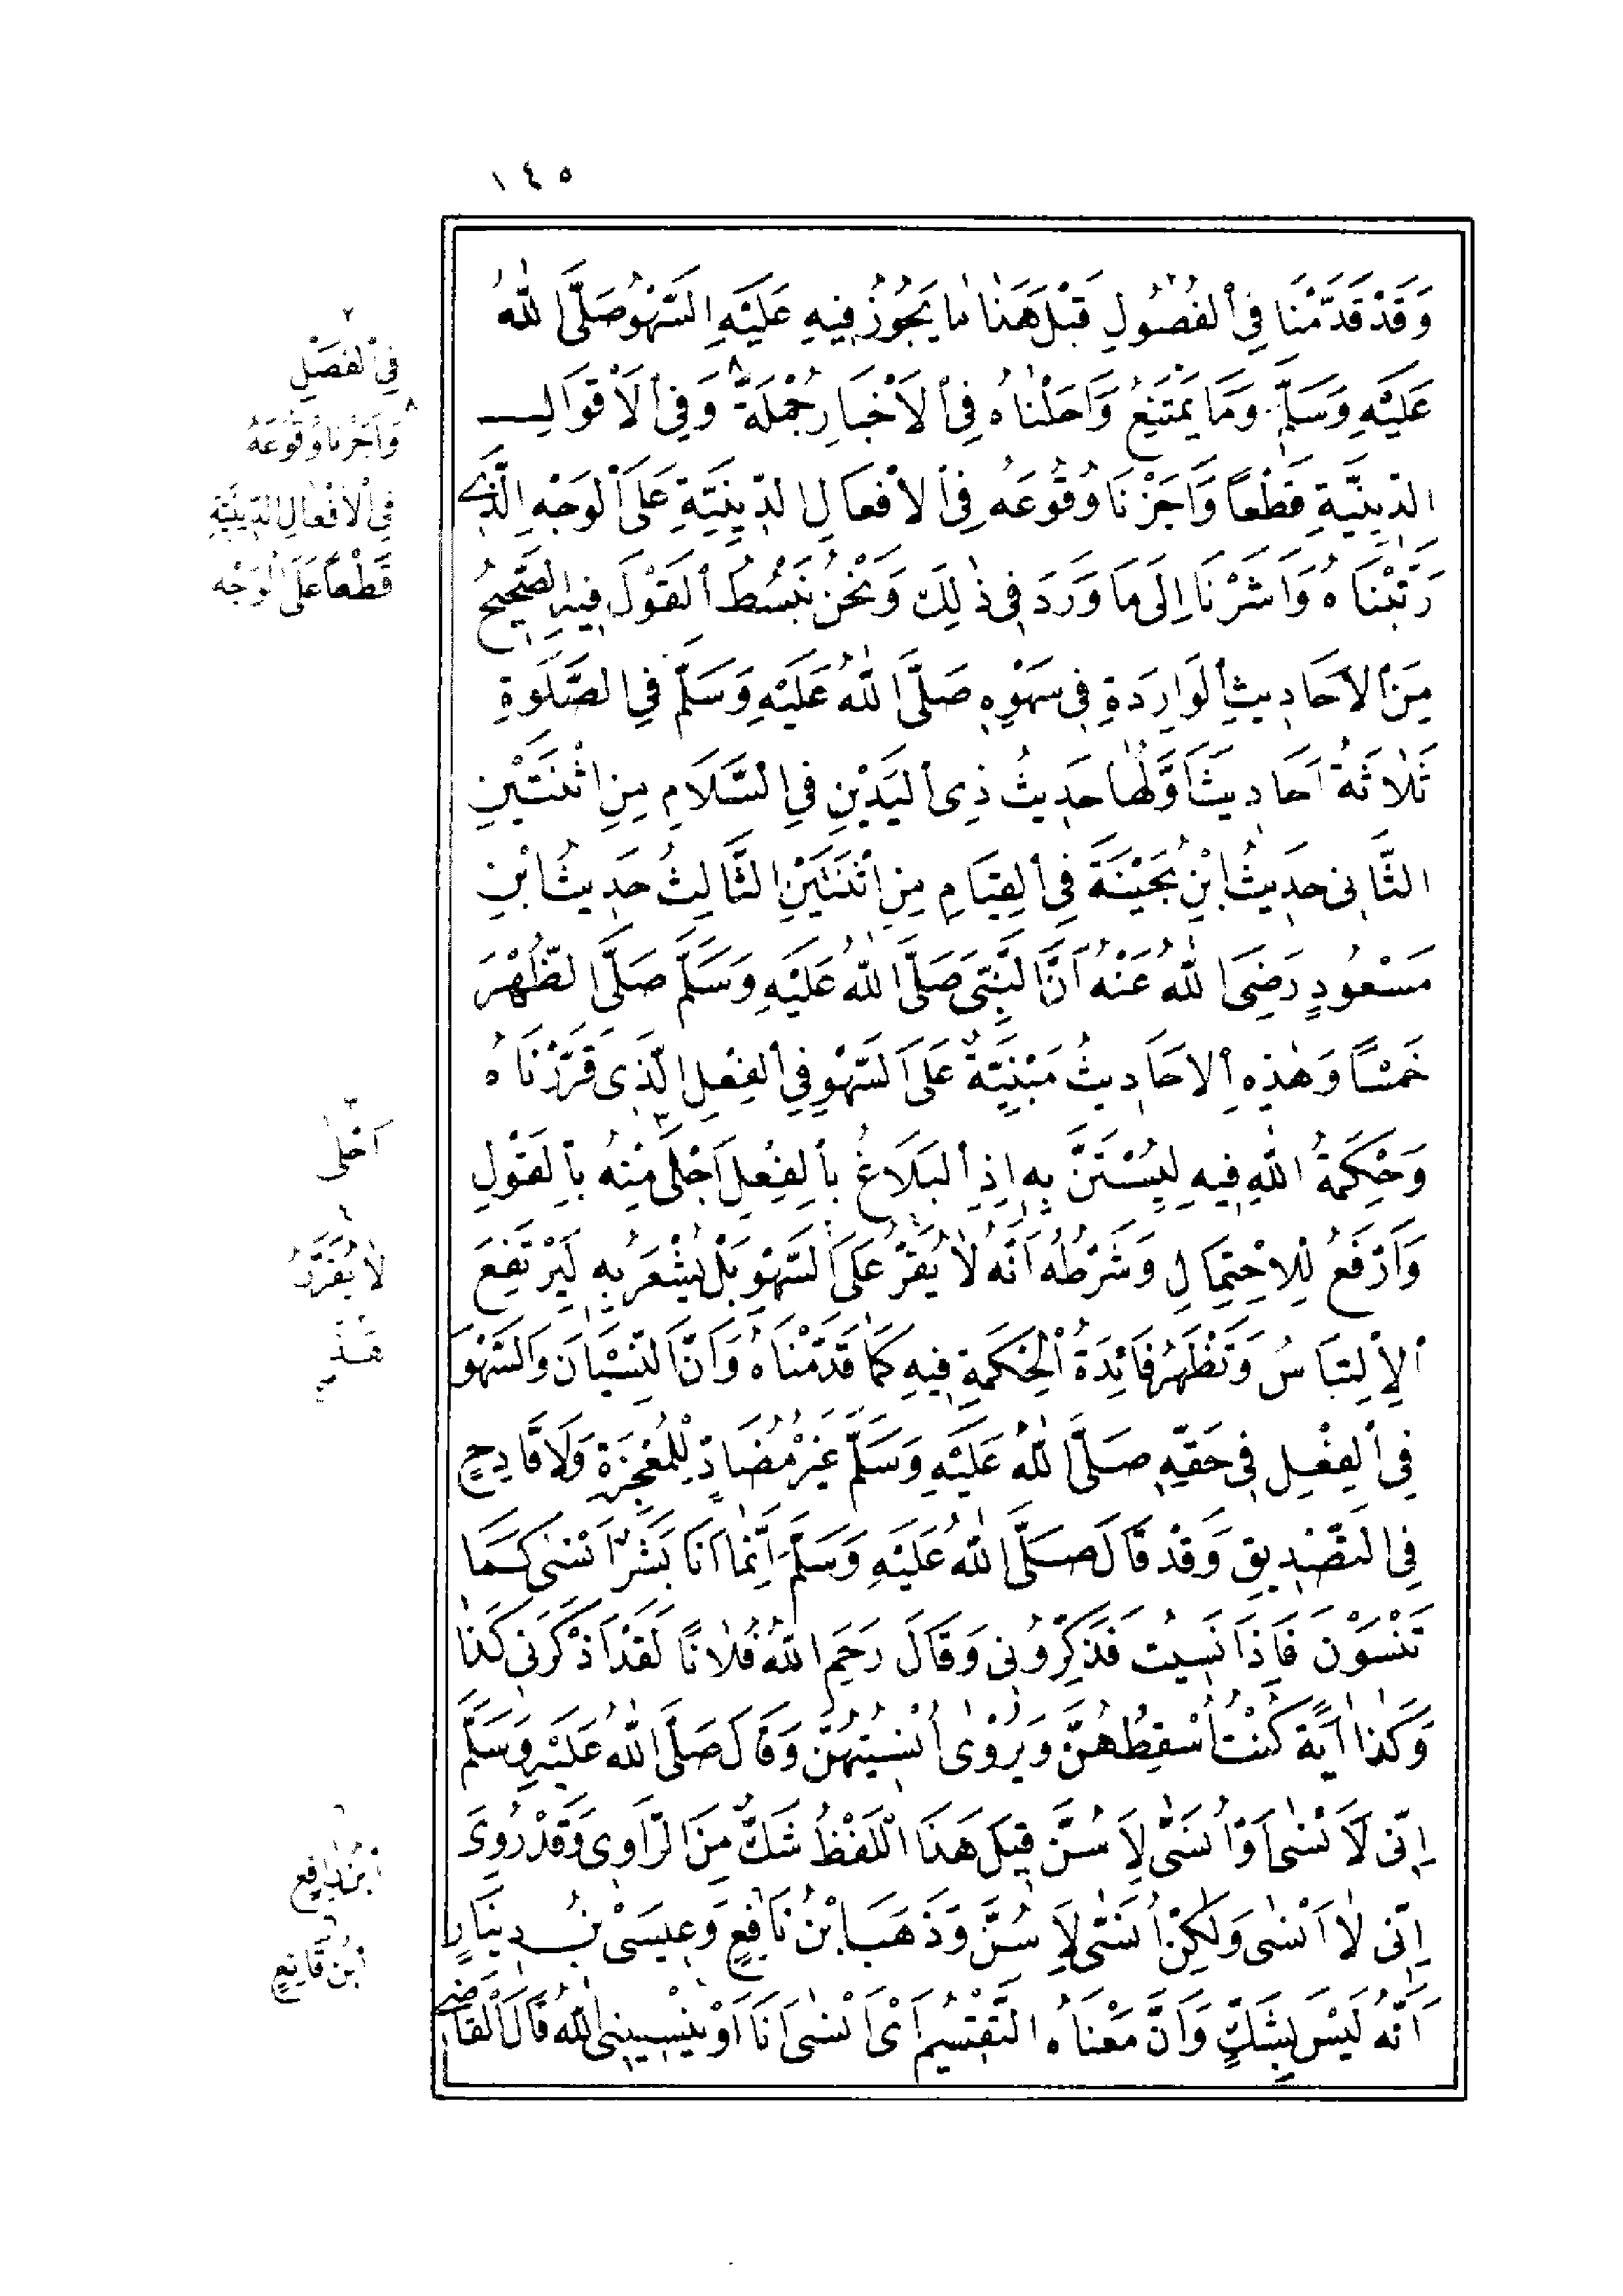 ١٤٥
وَقَدْ قَدَّمْنَا فِى الْفُصُولِ قَبْلَ هَذَا مَا يَجُوزُ فِيهِ عَلَيْهِ السَّهْوُ صَلَّى اللهُ
عَلَيْهِ وَسَلَّمَ وَمَا يَمْتَنِعُ وَاَحَلْنَاهُ فِى الْاَخْبَارِ جُمْلَةً ٨ وَفِى الْاَقْوَالِ
الدِّينِيَّةِ قَطْعاً وَاَجَزْنَا وُقُوعَهُ فِى الْاَفْعَالِ الدِّينِيَّةِ عَلَى الْوَجْهِ الَّذِى
رَتَّبْنَاهُ وَاَشَرْنَا اِلَى مَا وَرَدَ فِى ذٰلِكَ وَنَحْنُ نَبْسُطُ الْقَوْلَ فِيهِ الصَّحِيحُ
مِنَ الْاَحَادِيثِ الْوَارِدَةِ فِى سَهْوِهِ صَلَّى اللهُ عَلَيْهِ وَسَلَّمَ فِى الصَّلَوةِ
ثَلَاثَةُ اَحَادِيثَ اَوَّلُهَا حَدِيثُ ذِى الْيَدَيْنِ فِى السَّلَامِ مِنِ اثْنَتَيْنِ
الثَّانِى حَدِيثُ ابْنِ بُحَيْنَةَ فِى الْقِيَامِ مِنِ اثْنَتَيْنِ الثَّالِثُ حَدِيثُ ابْنِ
مَسْعُودٍ رَضِىَ اللهُ عَنْهُ اَنَّ النَّبِىَّ صَلَّى اللهُ عَلَيْهِ وَسَلَّمَ صَلَّى الظُّهْرَ
خَمْسًا وَهٰذِهِ الْاَحَادِيثُ مَبْنِيَّةٌ عَلَى السَّهْوِ فِى الْفِعْلِ الَّذِى قَرَّرْنَاهُ
وَحِكْمَةُ اللهِ فِيهِ لِيُسْتَنَّ بِهِ اِذِ الْبَلَاغُ بِالْفِعْلِ اَجْلَى ٣ مِنْهُ بِالْقَوْلِ
وَاَرْفَعُ لِلْاِحْتِمَالِ وَشَرْطُهُ اَنَّهُ لَا يُقَرُّ ٤ عَلَى السَّهْوِ بَلْ يُشْعَرُ بِهِ لِيَرْتَفِعَ
الْاِلْتِبَاسُ وَتَظْهَرُ فَائِدَةُ الْحِكْمَةِ فِيهِ كَمَا قَدَّمْنَاهُ وَاَنَّ النِّسْيَانَ وَالسَّهْوَ
فِى الْفِعْلِ فِى حَقِّهِ صَلَّى اللهُ عَلَيْهِ وَسَلَّمَ غَيْرُ مُضَادٍّ لِلْمُعْجِزَةِ وَلَا قَادِحٍ
فِى التَّصْدِيقِ وَقَدْ قَالَ صَلَّى اللهُ عَلَيْهِ وَسَلَّمَ اِنَّمَا اَنَا بَشَرٌ اَنْسٰى كَمَا
تَنْسَوْنَ فَاِذَا نَسِيتُ فَذَكِّرُونِى وَقَالَ رَحِمَ اللهُ فُلَانًا لَقَدْ اَذْكَرَنِى كَذَا
وَكَذَا اٰيَةً كُنْتُ اُسْقِطُهُنَّ وَيُرْوٰى اُنْسِيتُهُنَّ وَقَالَ صَلَّى اللهُ عَلَيْهِ وَسَلَّمَ
اِنِّى لَاَنْسٰى اَوْ اُنَسّٰى لِاَسُنَّ قِيلَ هَذَا اللَّفْظُ شَكٌّ مِنَ الرَّاوِى وَقَدْ رُوِىَ
اِنِّى لَا اَنْسٰى وَلٰكِنْ اُنَسّٰى لِاَسُنَّ وَذَهَبَ ابْنُ نَافِعٍ وَعِيسَى بْنُ دِينَارٍ
اَنَّهُ لَيْسَ بِشَكٍّ وَاَنَّ مَعْنَاهُ التَّقْسِيمُ اَىْ اَنْسٰى اَنَا اَوْ يُنْسِينِى اللهُ قَالَ الْقَاضِى
٢
فِى الْفَصْلِ
٨
وَاَجَزْنَا وُقُوعَهُ
فِى الْاَفْعَالِ الدِّينِيَّةِ
قَطْعاً عَلَى الْوَجْهِ
٣
اَحْلٰى
٤
لَا يُقَرَّرُ
هَذِهِ
٦
ابْنُ رَافِعٍ
٦
ابْنُ قَانِعٍ